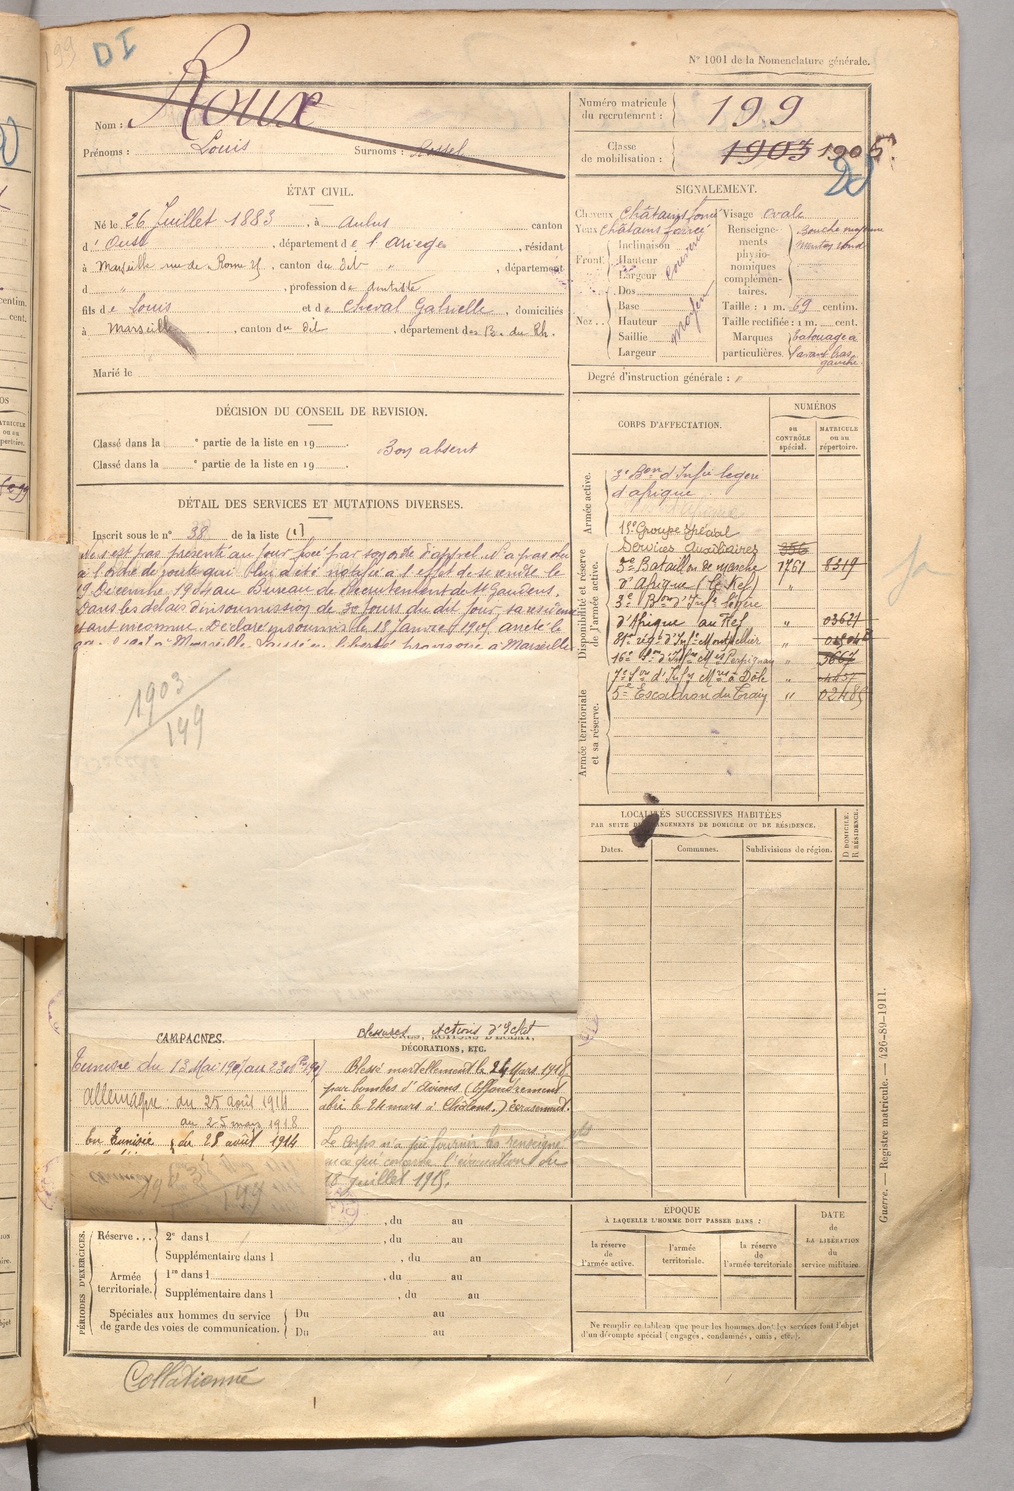 99
DI
N° 1001 de la Nomenclature générale.
Nom : Roux
Prénoms : Louis Surnoms : Rossel
Numéro matricule du recrutement : 199
Classe de mobilisation : 1903 1905
ÉTAT CIVIL.
Né le 26 Juillet 1883, à Aulus canton
d'Oust, département de l'Ariège, résidant
à Marseille rue de Rome 25, canton du dit " , département
d " , profession de dentiste
fils de Louis et de Cheval Gabrielle, domiciliés
à Marseille, canton du Dit, département des B. du Rh.
Marié le
SIGNALEMENT.
Cheveux Châtains foncé Visage ovale
Yeux Châtains foncé
Front Inclinaison
Hauteur
Largeur
couvert
Nez Dos
Base
Hauteur
Saillie
Largeur
moyen
Renseignements physionomiques complémentaires.
Bouche moyenne
Menton rond
Taille : 1 m. 69 centim.
Taille rectifiée : 1 m. cent.
Marques particulières. Tatouage à l'avant bras gauche
Degré d'instruction générale : "
DÉCISION DU CONSEIL DE REVISION.
Classé dans la ° partie de la liste en 19 .
Classé dans la ° partie de la liste en 19 .
Bon absent
DÉTAIL DES SERVICES ET MUTATIONS DIVERSES.
Inscrit sous le n° 38 de la liste (1)
Ne s'est pas présenté au jour fixé par son ordre d'appel. N'a pas obéi
à l'ordre de route qui lui a été notifié à l'effet de se rendre le
19 Décembre 1904 au Bureau de Recrutement de St Gaudens.
Dans les délais d'insoumission de 30 jours du dit jour, sa résidence
étant inconnue. Déclaré insoumis le 18 Janvier 1905, arrêté le
à Marseille, laissé en liberté provisoire à Marseille
1903
199
CORPS D'AFFECTATION.
NUMÉROS
au CONTRÔLE spécial.
MATRICULE ou au répertoire.
Armée active.
3e Bon d'Infie légère
d'afrique
Disponibilité et réserve de l'armée active.
15e Groupe spécial
Services Auxiliaires 356
3e Bataillon de marche 1761 8319
d'Afrique (Le Kef) "
3e Bon d'Infie légère
d'Afrique au Kef " 03621
81e rég. d'Infie Montpellier "
16e Son d'Infirs Mres Perpignan " 3667
Armée territoriale et sa réserve.
7e Son d'Infirs Mres à Dôle "
5e Escadron du Train " 02485
LOCALITÉS SUCCESSIVES HABITÉES
PAR SUITE DE CHANGEMENTS DE DOMICILE OU DE RÉSIDENCE.
Dates. Communes. Subdivisions de région. D. DOMICILE. R. RÉSIDENCE.
CAMPAGNES.
Tunisie du 13 Mai 1907 au
Allemagne : du 25 août 1914
au 25 mars 1918
En Tunisie du 28 août 1914
Blessures, Actions d'Eclat
DÉCORATIONS, ETC.
Blessé mortellement le 24 Mars 1918
par bombes d'Avions (effondrement
abri le 24 mars à Châlons.) écrasement.
Le Corps n'a pu fournir les renseignements
en ce qui concerne l'évacuation du
18 juillet 1915.
199
PÉRIODES D'EXERCICES.
, du au
Réserve... 2e dans l , du au
Supplémentaire dans l , du au
Armée territoriale. 1re dans l , du au
Supplémentaire dans l , du au
Spéciales aux hommes du service de garde des voies de communication. Du au
Du au
EPOQUE
À LAQUELLE L'HOMME DOIT PASSER DANS :
la réserve de l'armée active.
l'armée territoriale.
la réserve de l'armée territoriale
DATE de LA LIBÉRATION du service militaire
Ne remplir ce tableau que pour les hommes dont les services font l'objet
d'un décompte spécial (engagés, condamnés, omis, etc.).
Guerre. — Registre matricule. — 426-89-1911.
Collationné